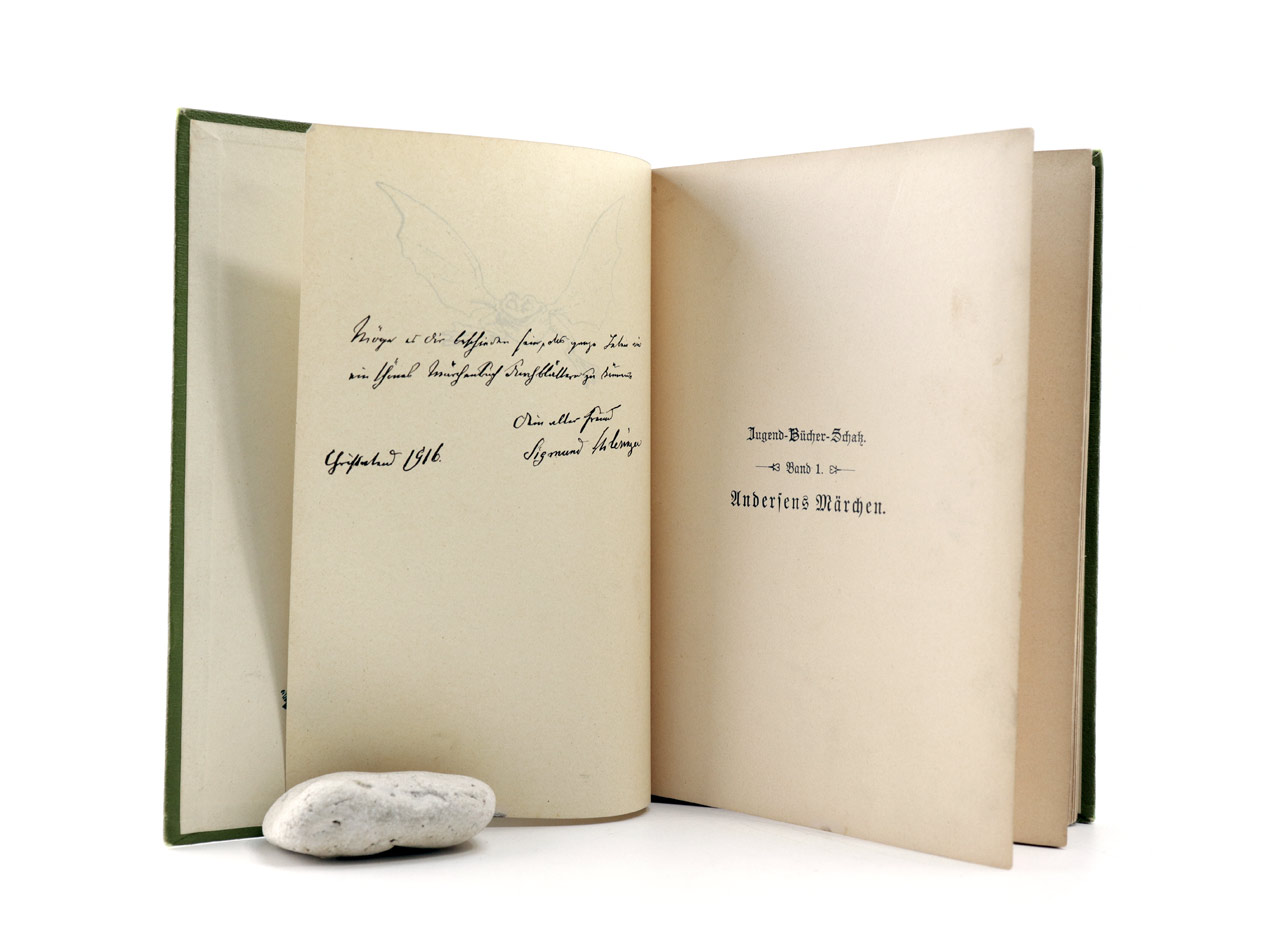 Möge es dir beschieden sein, das ganze Leben
ein schönes Märchenbuch zu
Dein alter Freund
Christabend 1916.
Sigmund
Jugend-Bücher-Schatz.
Band 1.
Andersens Märchen.